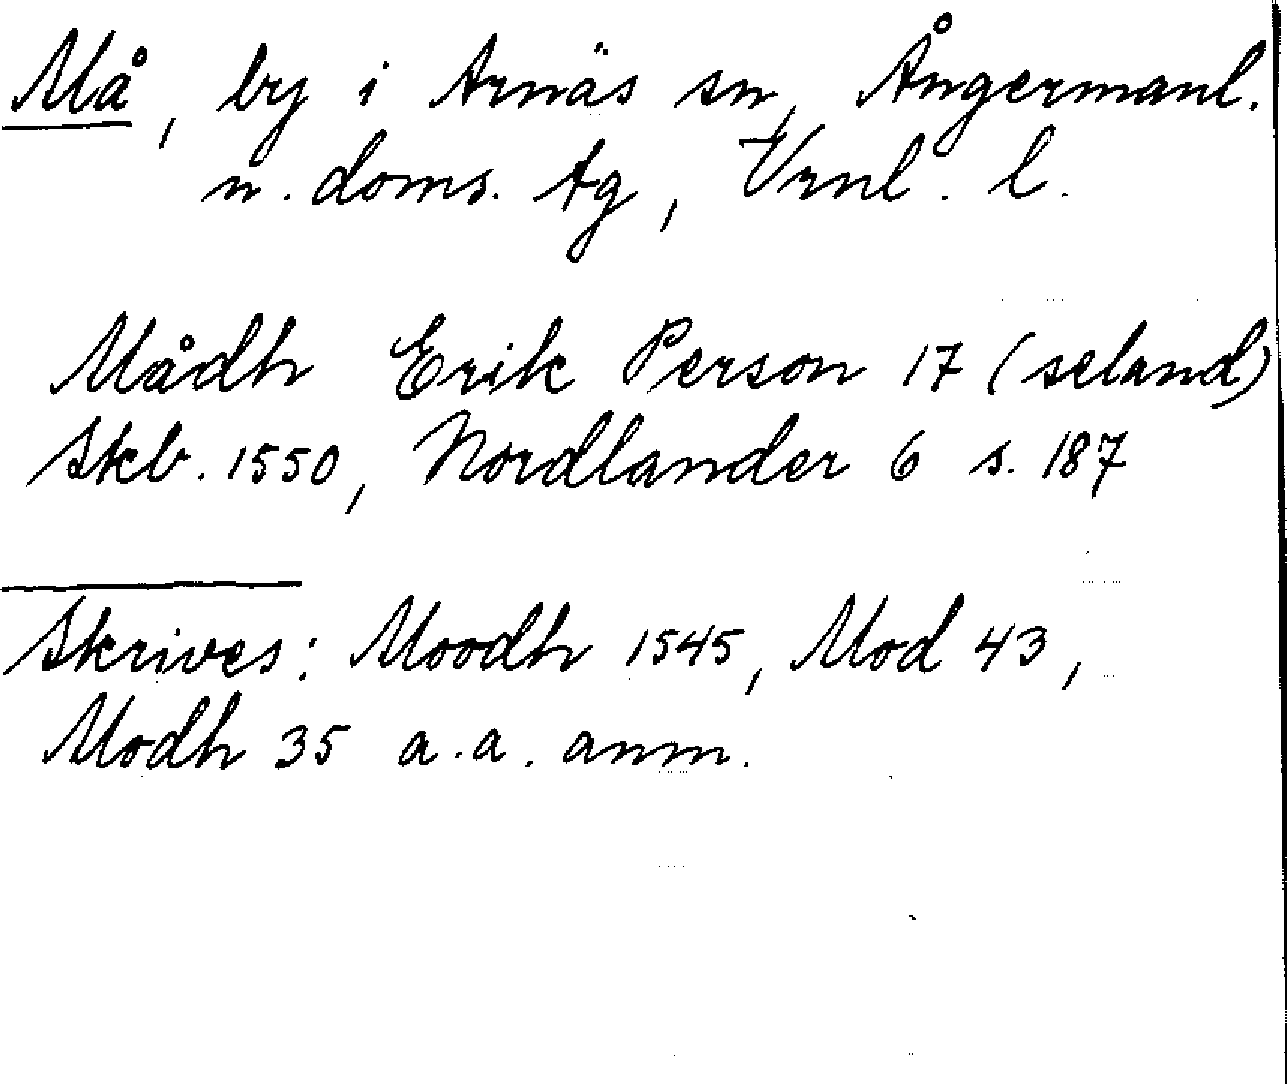 Må, by i Arnäs sn, Ångermanl.
n. doms. Ag, Vrnl. l.
Mådh Erik Person 17 (seland)
Skb. 1550, Nordlander 6 s. 187
Skrives: Moodh 1545, Mod 43,
Modh 35 a.a. anm.